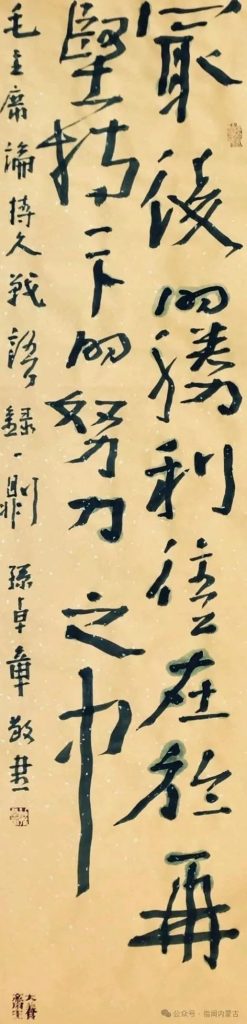 最後的勝利往往在於再
堅持一下的努力之中
毛主席論持久戰語錄一則 孫卓章敬書
公众号·指间内蒙古